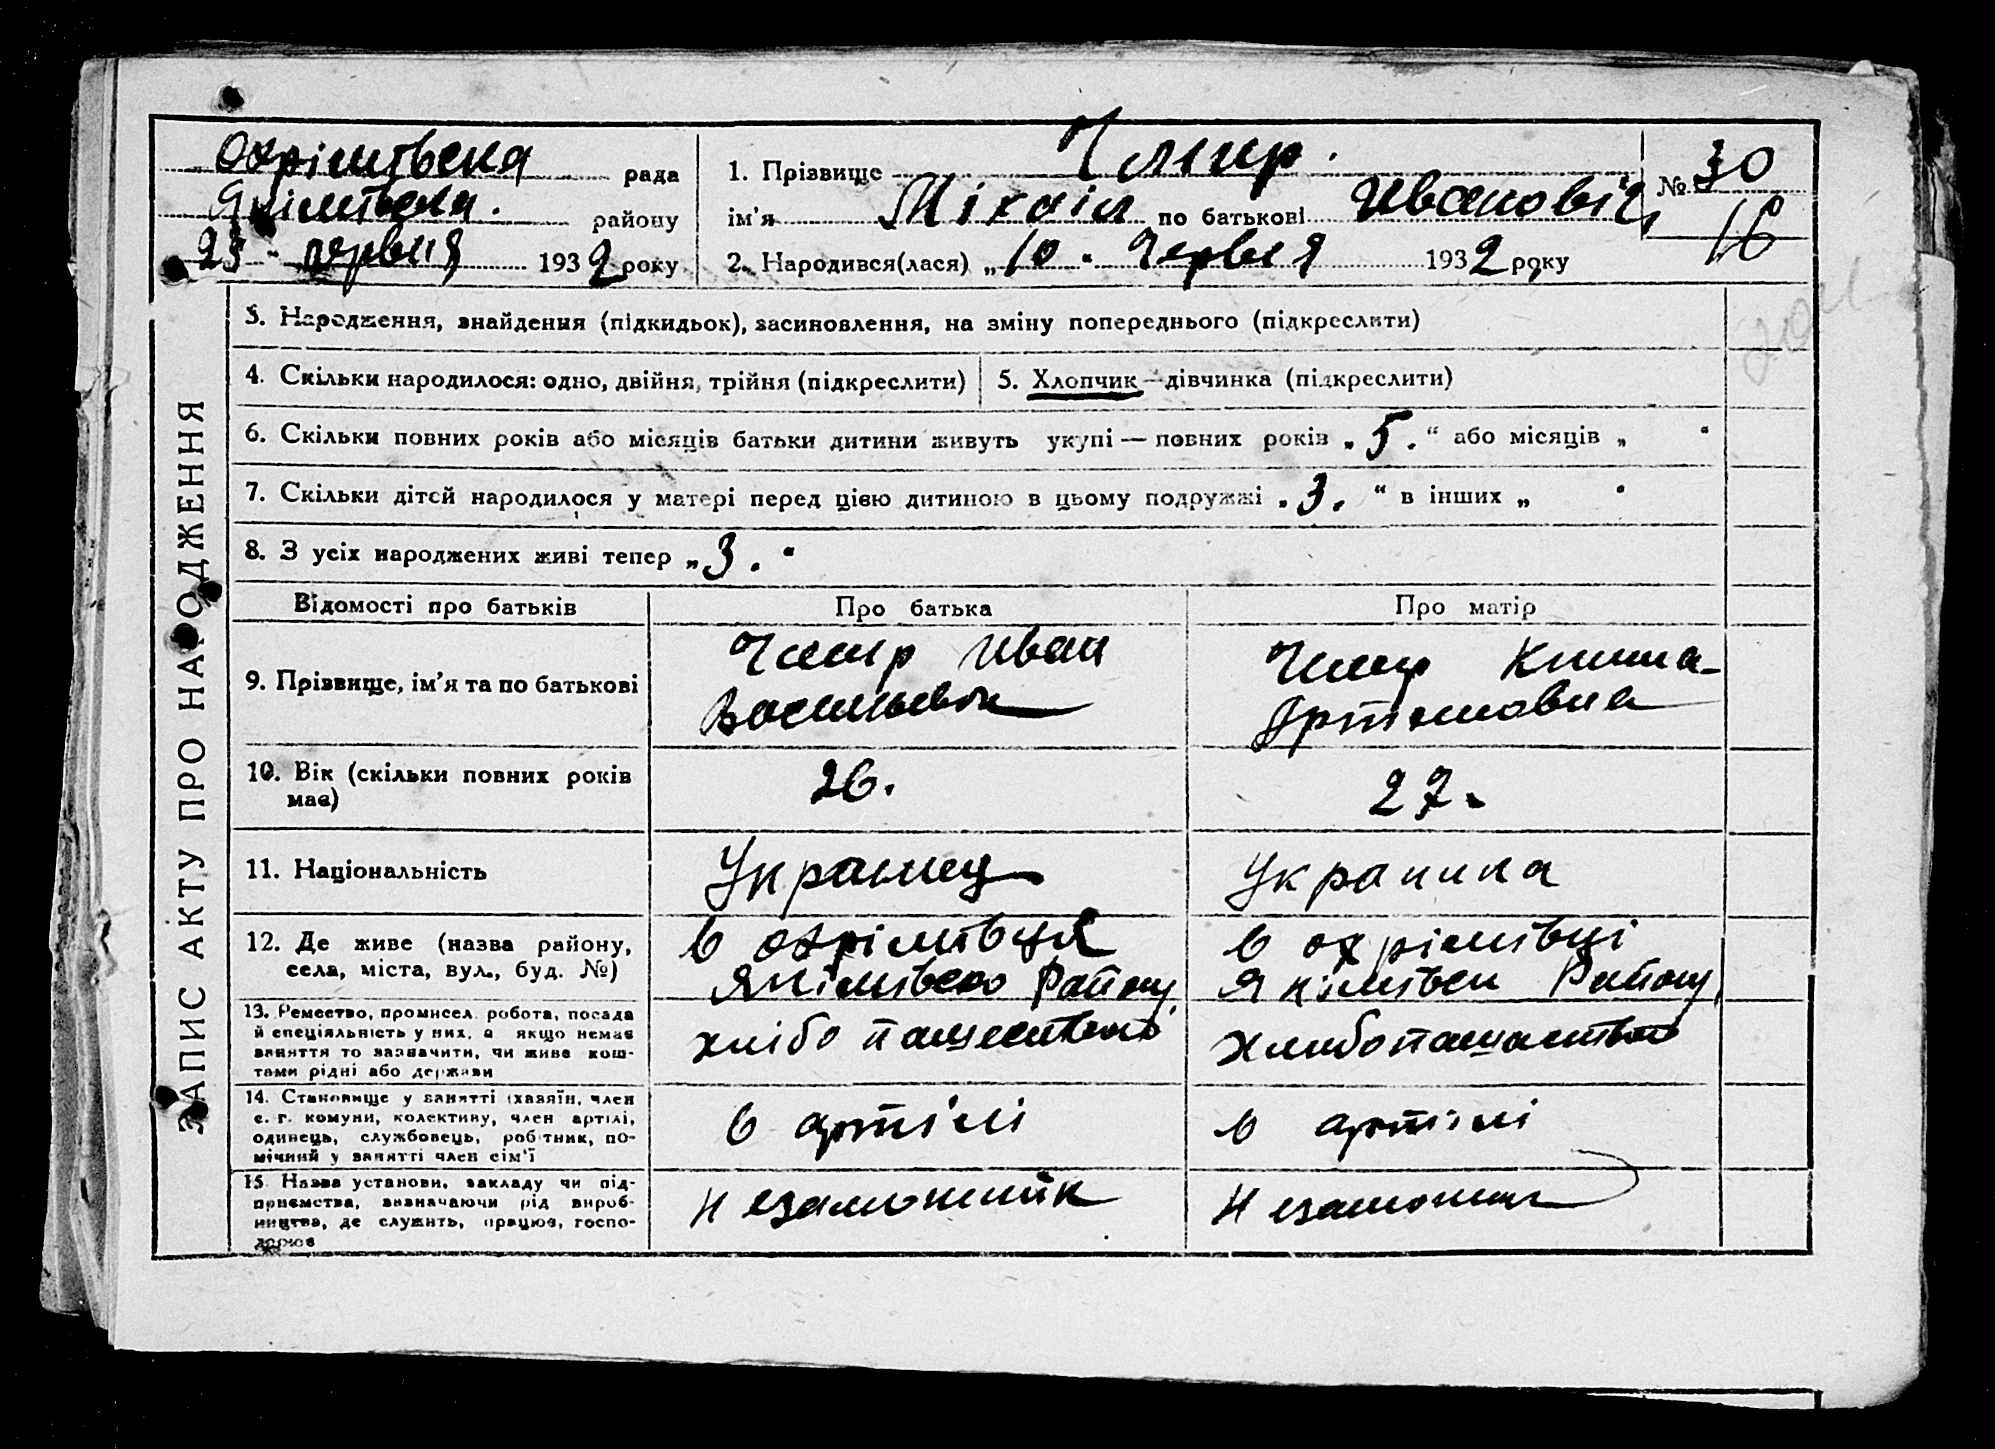 Охрімівська рада
Якімівськ. району
23 червня 1932 року
1. Прізвище Чмир.
ім'я Міхаіл по батькові Ивановіч
2. Народився(лася) „10" Червня 1932 року
№ 30
16
ЗАПИС АКТУ ПРО НАРОДЖЕННЯ
3. Народження, знайдення (підкидьок), засиновлення, на зміну попереднього (підкреслити)
4. Скільки народилося: одно, двійня, трійня (підкреслити)
5. Хлопчик—дівчинка (підкреслити)
6. Скільки повних років або місяців батьки дитини живуть укупі — повних років „5." або місяців „ "
7. Скільки дітей народилося у матері перед цією дитиною в цьому подружжі „3." в інших „ "
8. З усіх народжених живі тепер „3."
Відомості про батьків
Про батька
Про матір
9. Прізвище, ім'я та по батькові
Чмир Иван
Васильевич
Чмир
Артемовна
10. Вік (скільки повних років
має)
26.
27.
11. Національність
Украинец
Украинка
12. Де живе (назва району,
села, міста, вул., буд. №)
в Охрімівця
Якімівсько Району
в Охрімівці
Якімівськ Району
13. Ремество, промисел, робота, посада
й спеціяльність у них, а якщо немає
заняття то зазначити, чи живе кош-
тами рідні або держави
хлібопашество
хлибопашество
14. Становище у занятті (хазяїн, член
с.-г. комуни, колективу, член артілі,
одинець, службовець, робітник, по-
мічний у занятті член сім'ї
в артілі
в артілі
15. Назва установи, закладу чи під-
приємства, визначаючи рід вироб-
ництва, де служить, працює, госпо-
дарює
незаможник
незаможник